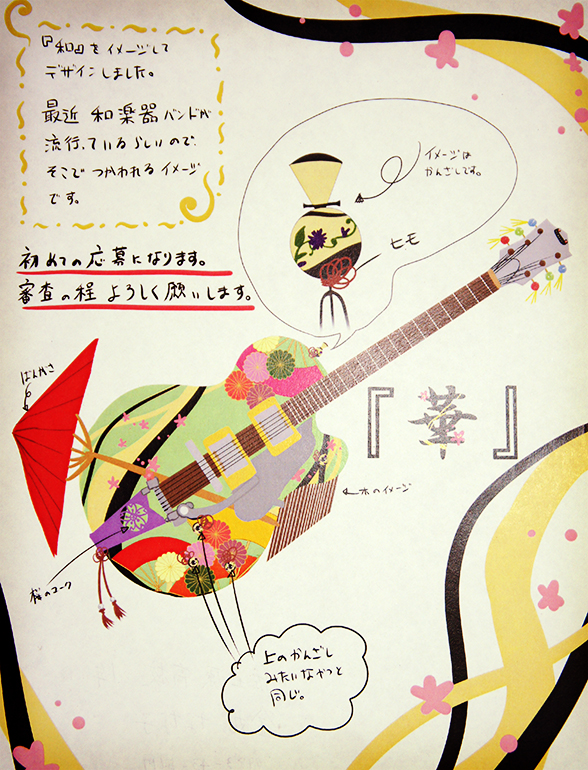 『和』をイメージして
デザインしました。
最近 和楽器バンドが
流行っているらしいので、
そこで つかわれるイメージ
です。
初めての応募になります。
審査の程 よろしく願いします。
イメージは
かんざしです。
ヒモ
ばんがさ
『華』
木のイメージ
桜のマーク
上のかんざし
みたいなやつと
同じ。